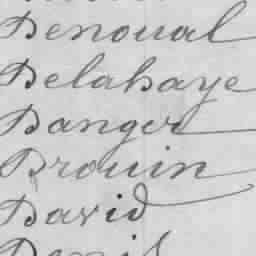 Denoual
Delahaye
Danger
Drouin
David
Denis